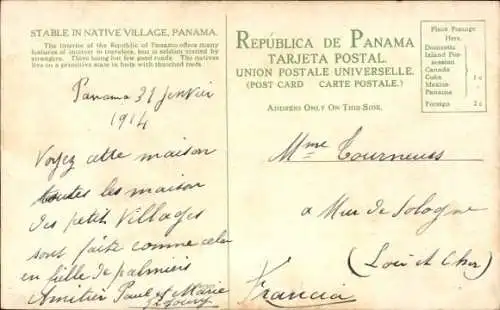 STABLE IN NATIVE VILLAGE, PANAMA.
The interior of the Republic of Panama offers many
features of interest to travelers, but is seldom visited by
strangers. There being but few good roads. The natives
live on a primitive scale in huts with thatched roofs.
Panama 31 janvier
1914
Voyez cette maison
toutes les maison
des petit Villages
sont faite comme cela
en feille de palmiers
Amitier Paul et Marie
REPÚBLICA DE PANAMA
TARJETA POSTAL.
UNION POSTALE UNIVERSELLE.
(POST CARD CARTE POSTALE.)
ADDRESS ONLY ON THIS SIDE.
Place Postage
Here.
Domestic
Island Pos-
session
Canada
Cuba 1c
Mexico
Panama
Foreign 2c
Mme Tourneues
a Mur de Sologne
(Loir et Cher)
Francia